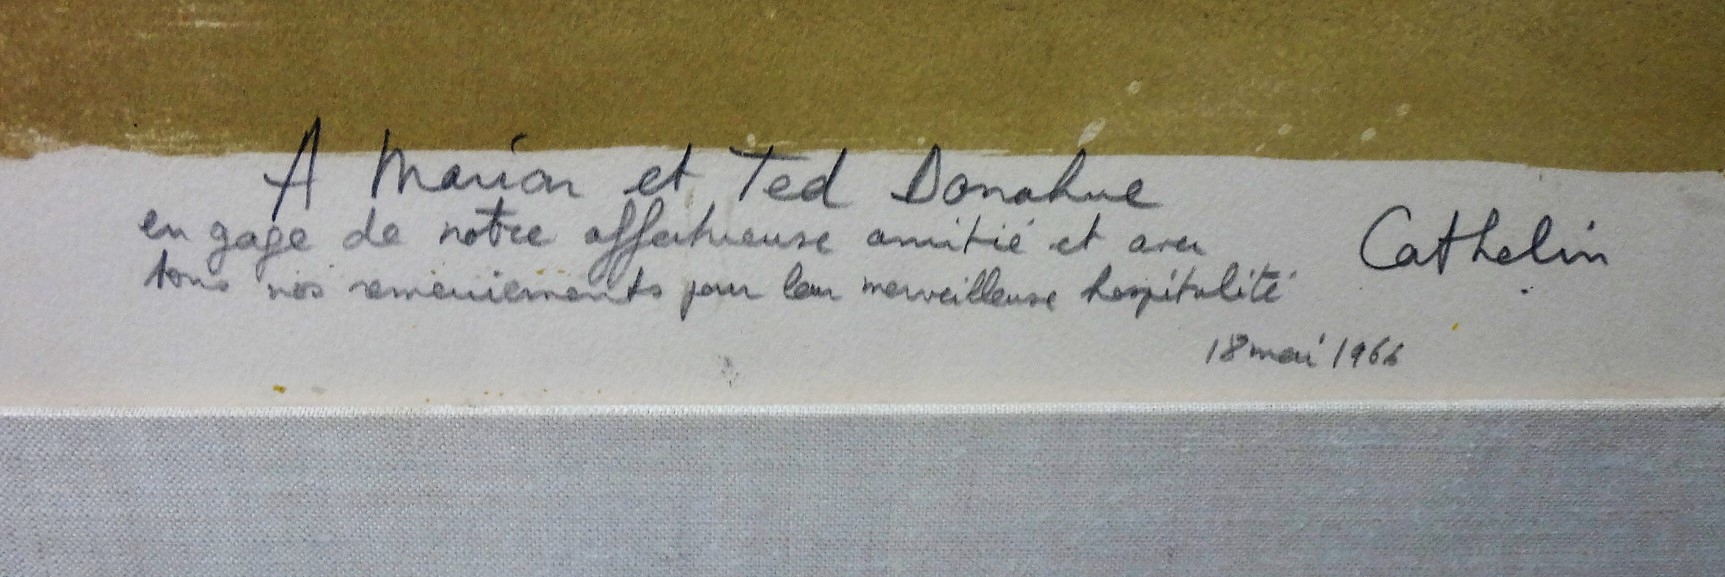 A Marion et Ted Donahue
en gage de notre affectueuse amitié et avec
tous nos remerciements pour leur merveilleuse hospitalité
Cathelin
18 mai 1966